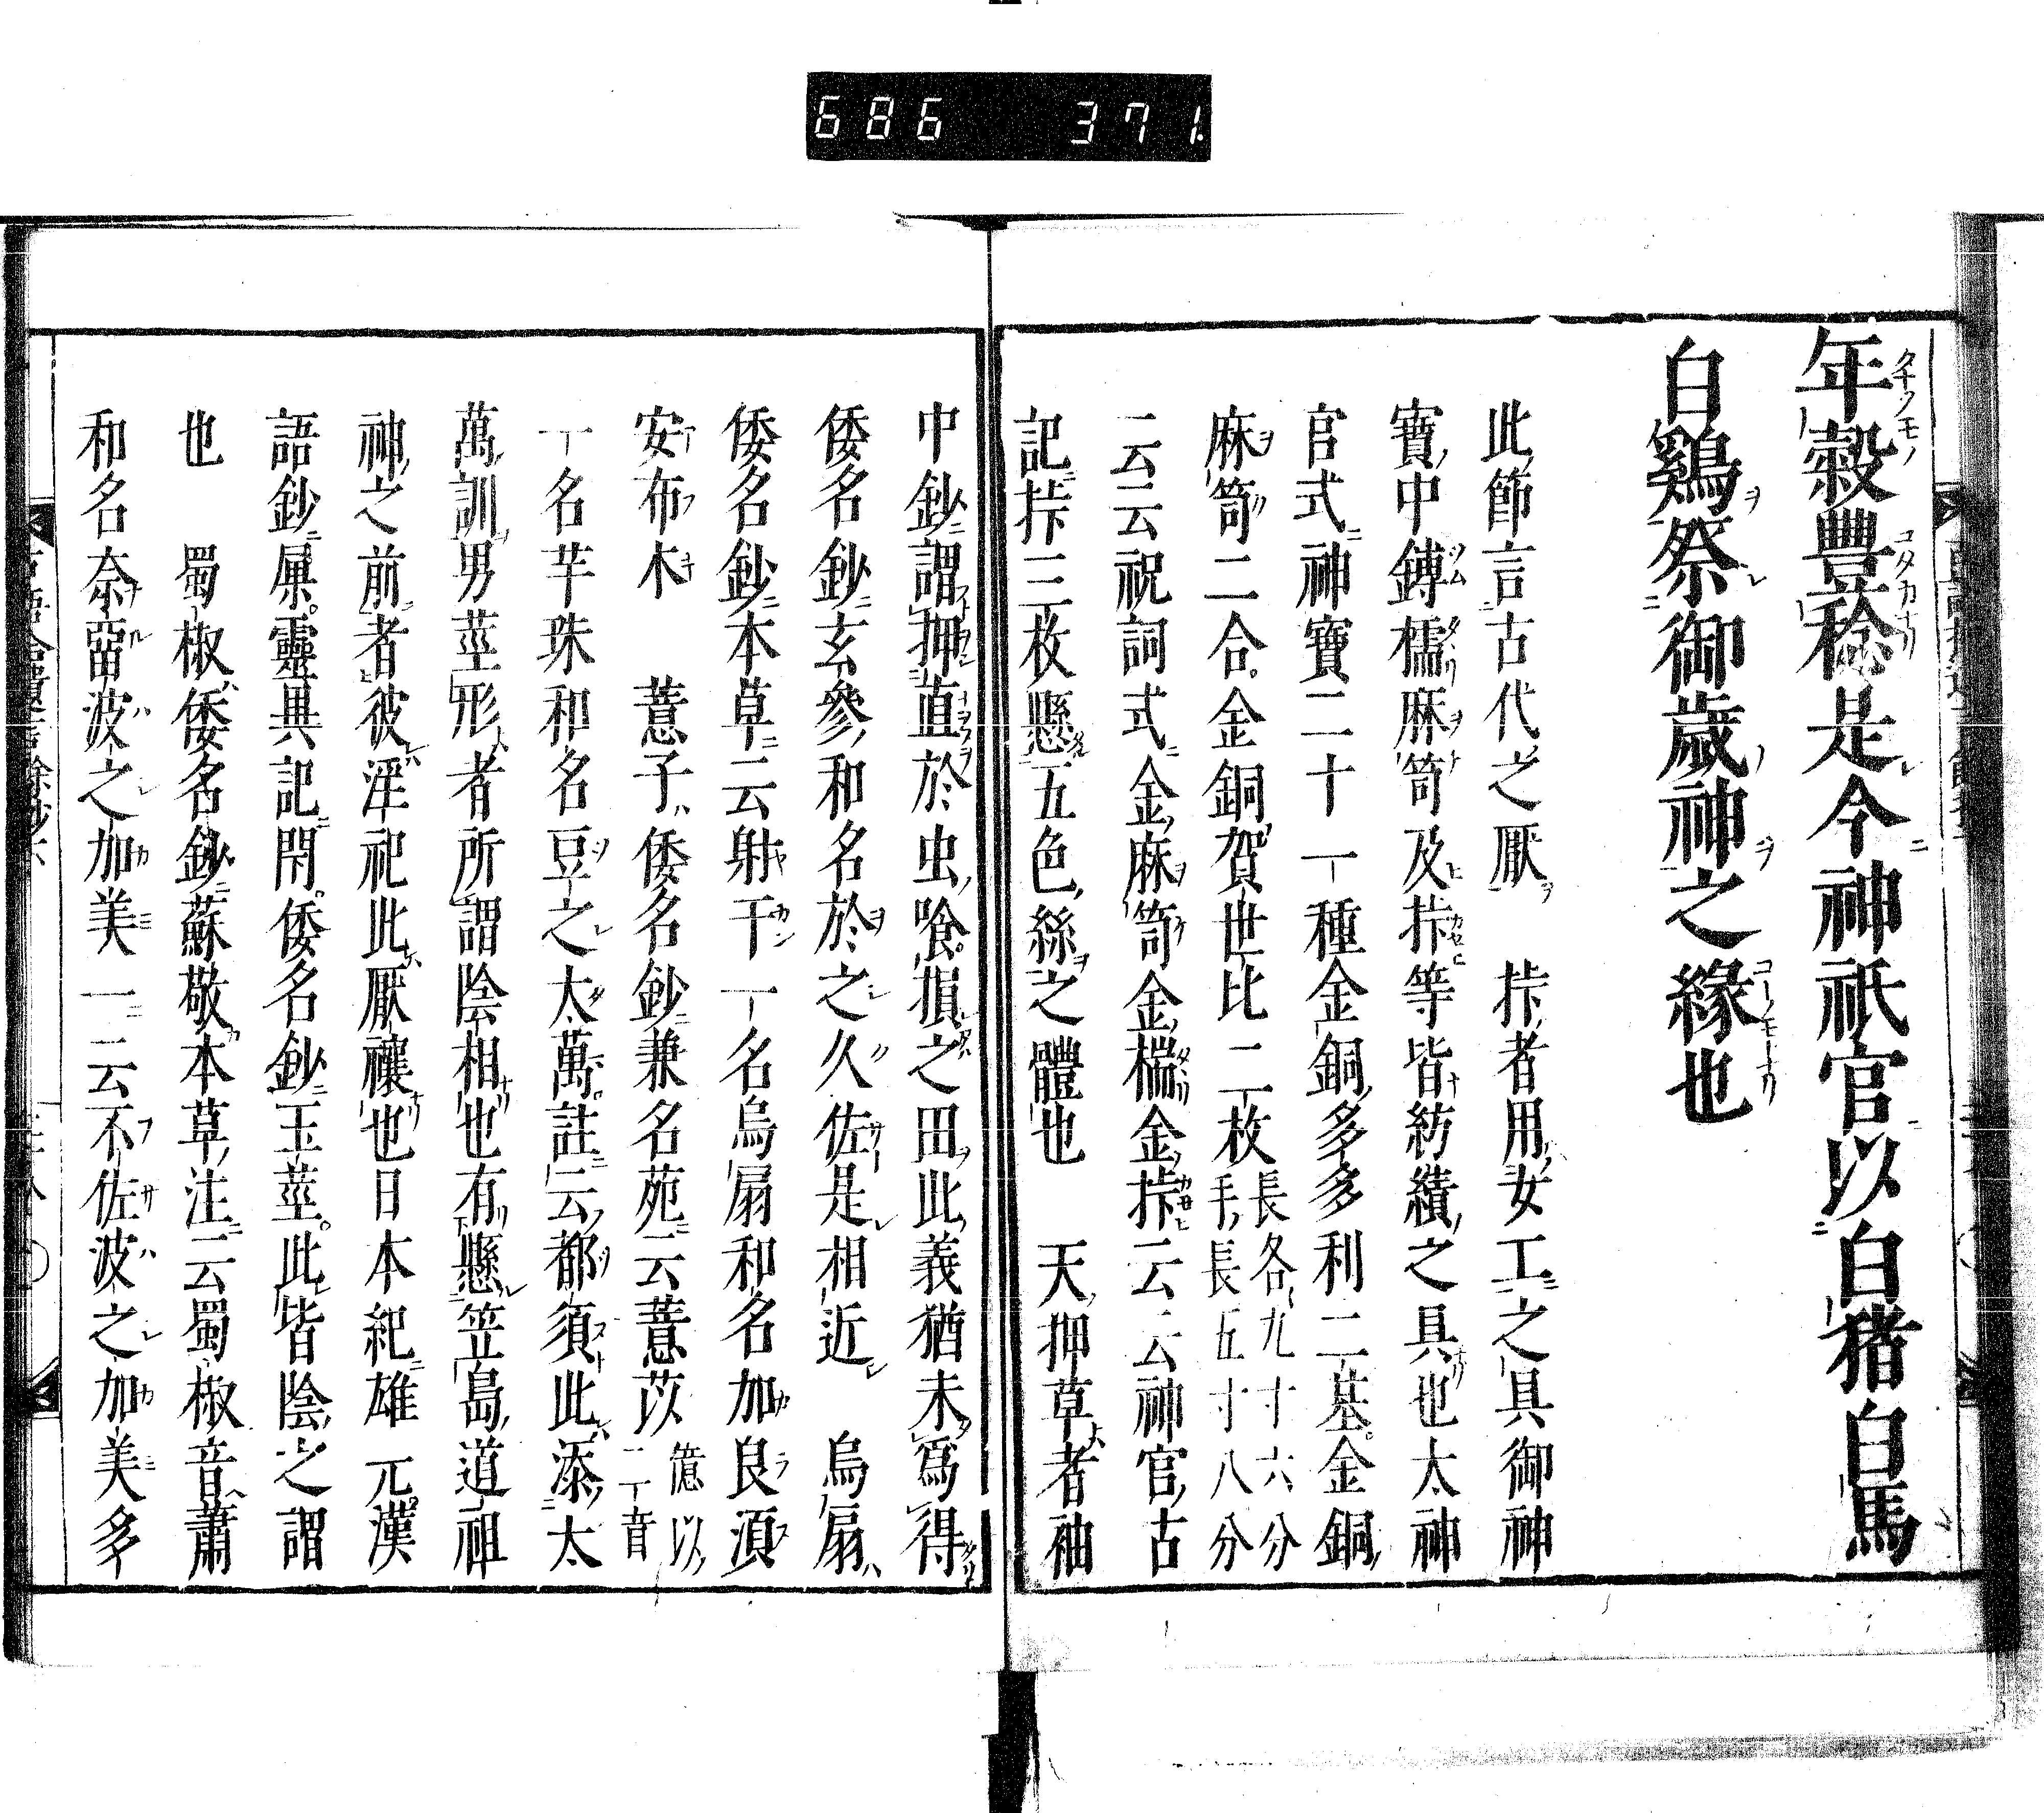 686 371
年穀豐稔是今神祇官以白猪白馬
白鷄祭御歳神之縁也
此節言古代之厭 㭙者用女工之具御神
寶中鏄𣟧麻笥及㭙等皆紡績之具也太神
官式神寶二十一種金銅多多利二基金銅
麻笥二合金銅賀世比二枚長各九寸六分手長五寸八分
云云祝詞式金麻笥金㯓金㭙云云神官古
記㭙三枚懸五色絲之體也 天押草者袖
中鈔謂押直於虫喰損之田此義猶未爲得
倭名鈔玄參和名於之久佐是相近 烏扇
倭名鈔本草云射干一名烏扇和名加良須
安布木 薏子倭名鈔兼名苑云薏苡億以二音
一名芋珠和名豆之太萬註云都須此添太
萬訓男莖形者所謂陰相也有懸笠島道祖
神之前者彼淫祀此厭禳也日本紀雄元漢
語鈔㞗靈異記閇倭名鈔玉莖此皆陰之謂
也 蜀椒倭名鈔蘇敬本草注云蜀椒音蕭
和名奈留波之加美一云不佐波之加美多